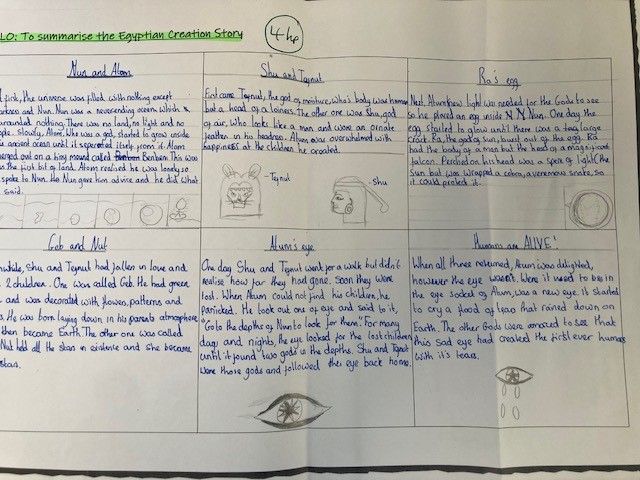 LO: To summarise the Egyptian Creation Story
4hp
Nun and Atum
first, the universe was filled with nothing except
darkness and Nun. Nun was a neverending ocean which
surrounded nothing. There was no land, no light and no
people. Slowly, Atum, who was a god, started to grow inside
ancient ocean until it seperated itself from it. Atum
emerged out on a tiny mound called Benben. This was
the first bit of land. Atum realised he was lonely so
spoke to Nun. He Nun gave him advice and he did what
said.
Shu and Tefnut
First came Tefnut, the god of moisture, who's body was human
but a head of a lioness. The other one was Shu, god
of air, who looks like a man and wore an ornate
feather in his headress. Atum was overwhelmed with
happiness at the children he created.
-Tefnut
-Shu
Ra's egg
Next, Atum knew light was needed for the Gods to see
so he placed an egg inside N N Nun. One day the
egg started to glow until there was a large
crack. Ra, the god of sun, burst out of the egg. Ra
had the body of a man but the head of a magnificent
falcon. Perched on his head was a spear of light (the
Sun but was wrapped a cobra, a venemous snake, so
it could protect it.
Geb and Nut
while, Shu and Tefnut had fallen in love and
2 children. One was called Geb. He had green
and was decorated with flower, patterns and
He was born laying down in his parents atmosphere
then became Earth. The other one was called
Nut held all the stars in existence and she became
stars.
Atum's eye
One day Shu and Tefnut went for a walk but didn't
realise how far they had gone. Soon they were
lost. When Atum could not find his children, he
panicked. He took out one of eye and said to it,
"Go to the depths of Nun to look for them." For many
days and nights, the eye looked for the lost children
until it found two gods in the depths. Shu and Tefnut
were those gods and followed the eye back home.
Humans are ALIVE!
When all three returned, Atum was delighted,
however the eye wasn't. Were it used to be, in
the eye socket of Atum, was a new eye. It started
to cry a flood of tears that rained down on
Earth. The other Gods were amazed to see that
this sad eye had created the first ever humans
with it's tears.